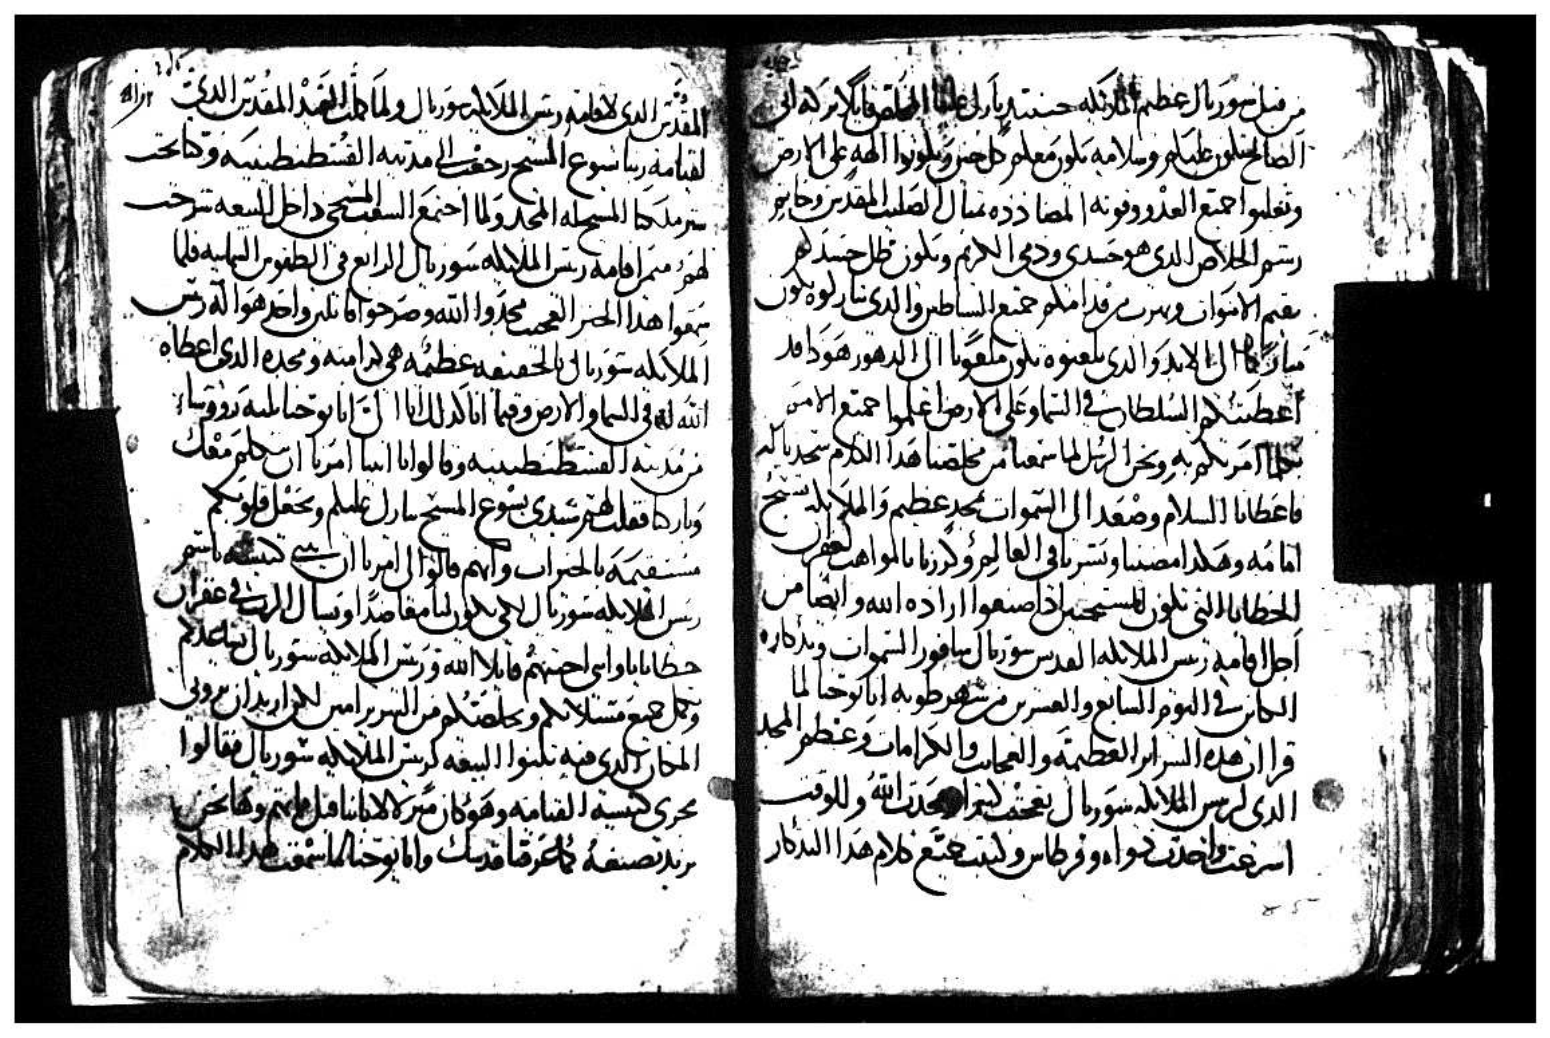 من قبل سوريال عظيم الملائكه حسنتد بارك علينا المخلص قايلا بركة ابى
الصالح تكون عليكم وسلامه يكون معكم كل حين وتكونوا الهه على الارض
وتغلبوا جميع العدو وقوته المضادده بمثال الصليب المقدس وخاتم
رسم الخلاص الدى هو جسدى ودمى الكريم ويكون ظل جسدكم
يقيم الاموات ويهرب من قدامكم جميع الشياطين والدى تباركوه يكون
مباركا الى الابد والدى تلعنوه يكون ملعونا الى الدهور هودا قد
اعطيتكم السلطان فى السما وعلى الارض اعلموا جميع الامم
بكلما امرتكم به ونحن الرسل لما سمعنا من مخلصنا هدا الكلام سجدنا له
فاعطانا السلام وصعد الى السموات بمجد عظيم والملايكه تسبح
امامه وهكدا مضينا وبشرنا فى العالم وكرزنا بالمواهب لغفران
الخطايا التى تكون للمسيحيين اذا صنعوا اراده الله وايضا من
اجل اقامة ريس الملايكه القديس سوريال سافور السموات وتدكاره
الكاين فى اليوم السابع والعشرين من شهر طوبه انا يوحنا لما
قرا ان هده السراير العظيمه والعجايب والكرامات وعظم المجد
الدى لريس الملايكه سوريال تعجبت كتيرا ومجدت الله وللوقت
اسرعت واخدت دواه وقرطاس وكتبت جميع كلام هدا التدكار
المقدس الدى لاقامة ريس الملايكه سوريال ولما كملت العيد المقدس الدى
لقيامة ربنا يسوع المسيح رجعت الى مدينة القسطنطينيه وكنا تحت
ملكنا المسيح له المجد ولما اجتمع الشعب المسيحى داخل البيعه شرحت
لهم ميمر اقامة ريس الملايكه سوريال الرابع فى الطقوس السماييه فلما
سمعوا هدا الخبر العجيب مجدوا الله وصرخوا قايلين واحد هو اله ريس
الملايكه سوريال بالحقيقه عظيمه هى كرامته ومجده الدى اعطاه
الله له فى السما والارض وفيما انا كدلك اتا الى انا يوحنا تلته روؤسا
من مدينة القسطنطينيه وقالوا يا ابينا امرنا ان نتكلم معك
وباركنا فقلت لهم سيدى يسوع المسيح يبارك عليكم ويجعل قلوبكم
مستقيمه بالخيرات وانهم قالوا لى امرنا ان نبنى كنيسه باسم
ريس الملايكه سوريال لكى يكون لنا معاضدا ويسال الرب فى غفران
خطايانا وانى اجبتهم قايلا الله وريس الملايكه سوريال يساعدكم
ويكمل جميع مسلاتكم ويخلصكم من الشرير امين لكن اريد ان ترونى
المكان الدى فيه تبنوا البيعه لريس الملايكه سوريال فقالوا
بحرى كنيسة القيامه وهو كان منزلا لابانا قبل ما يتم وها نحن
نريد نصنعه كما عرفنا قدسك وانا يوحنا لما سمعت هدا الكلام